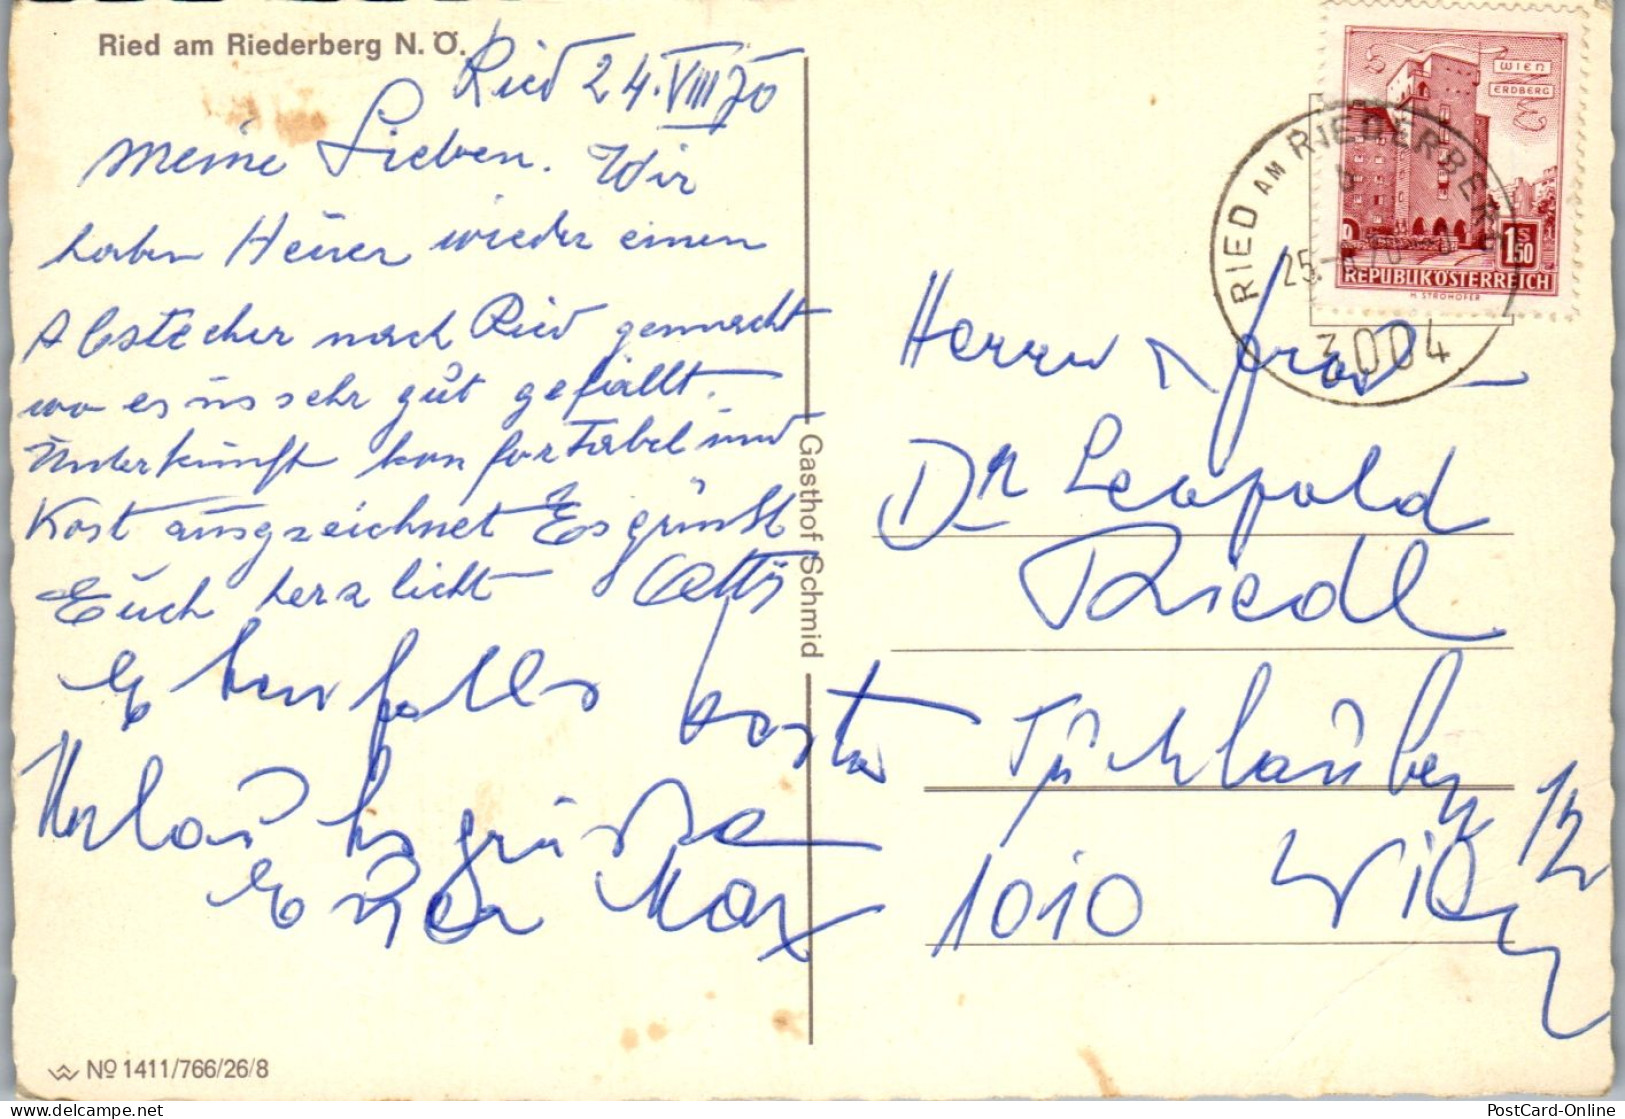 Ried am Riederberg N. Ö.
Ried 24. VIII 70
Meine Lieben. Wir
haben Heuer wieder einen
Abstecher nach Ried gemacht
wo es uns sehr gut gefällt.
Unterkunft komfortabel und
Kost ausgezeichnet Es grüßt
Euch herzlichst
Ebenfalls
Urlaubsgrüße
Euer Max
Gasthof Schmid
Nº 1411/766/26/8
WIEN
ERDBERG
1 S 50
REPUBLIK ÖSTERREICH
H. STROHOFER
RIED AM RIEDERBERG
b
25.
3004
Herrn
Dr Leopold
Riedl
Tuchlauben 12
1010 Wien
PostCard-Online